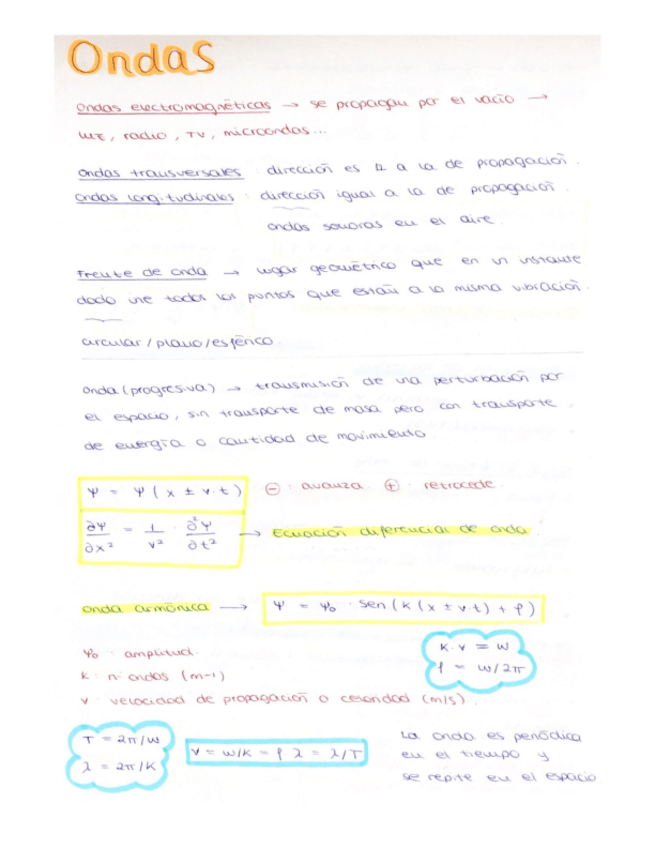 Ondas
Ondas electromagnéticas → se propagan por el vacío →
luz, radio, TV, microondas...
Ondas transversales : dirección es ⊥ a la de propagación.
Ondas longitudinales : dirección igual a la de propagación.
ondas sonoras en el aire.
Frente de onda → lugar geométrico que en un instante
dado une todos los puntos que están a la misma vibración.
circular / plano / esférico.
Onda (progresiva) → transmisión de una perturbación por
el espacio, sin transporte de masa pero con transporte
de energía o cantidad de movimiento.
Ψ = Ψ ( x ± v · t ) ⊖ : avanza. ⊕ : retrocede.
∂Ψ/∂x² = 1/v² · ∂²Ψ/∂t² → Ecuación diferencial de onda
onda armónica → Ψ = Ψ₀ · sen ( k ( x ± v · t ) + φ )
k · v = w
f = w/2π
Ψ₀ : amplitud.
k : nº ondas (m-1)
v : velocidad de propagación o celeridad (m/s).
T = 2π/w
λ = 2π/k
v = w/k = f λ = λ/T
La onda es periódica
en el tiempo y
se repite en el espacio